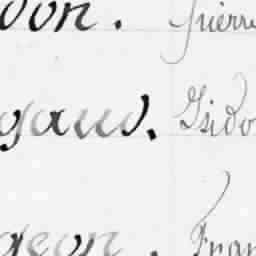 don. pierre
gaud. Isido
geon. Fran